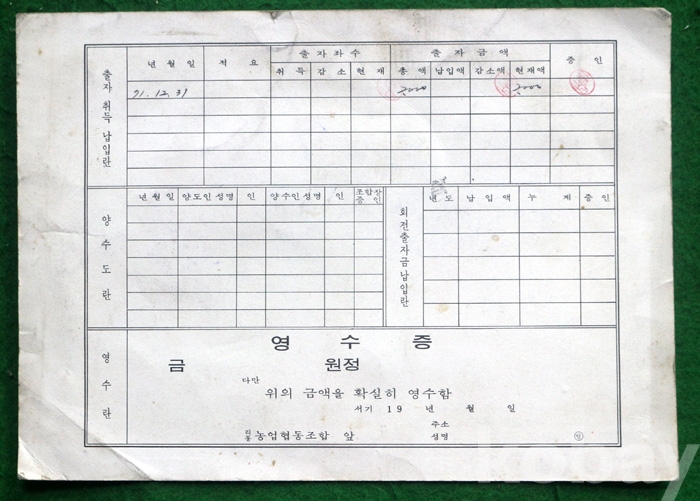 출자취득납입란
년월일 적요 출자좌수 출자금액 증인
취득 감소 현재 총액 납입액 감소액 현재액
71.12.31
양수도란
년월일 양도인성명 인 양수인성명 인 조합장증인
회전출자금납입란
년도 납입액 누계 증인
영수란
영수증
금 원정
다만
위의 금액을 확실히 영수함
서기 19 년 월 일
주소
리동 농업협동조합 앞 성명
kobay